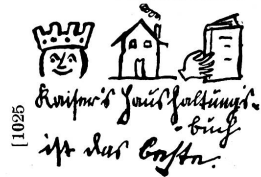 Kaiser's Haushaltungs-
-buch
ist das beste.
[1025